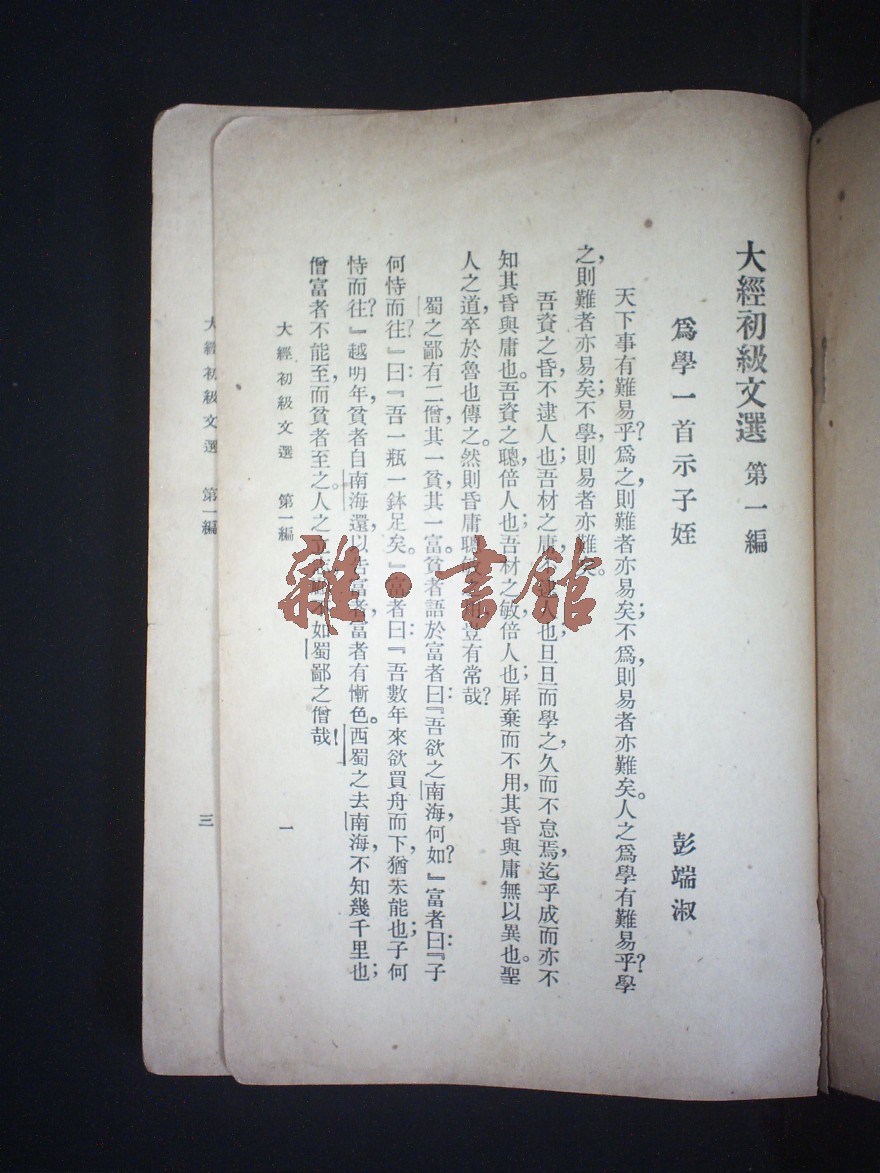 大經初級文選 第一編
爲學一首示子姪 彭端淑
天下事有難易乎?爲之,則難者亦易矣;不爲,則易者亦難矣。人之爲學有難易乎?學
之,則難者亦易矣;不學,則易者亦難矣。
吾資之昏,不逮人也;吾材之庸,不逮人也;旦旦而學之,久而不怠焉,迄乎成,而亦不
知其昏與庸也。吾資之聰,倍人也;吾材之敏,倍人也;屏棄而不用,其昏與庸無以異也。聖
人之道,卒於魯也傳之。然則昏庸聰敏之用,豈有常哉?
蜀之鄙有二僧,其一貧,其一富。貧者語於富者曰:『吾欲之南海,何如?』富者曰:『子
何恃而往?』曰:『吾一瓶一鉢足矣。』富者曰:『吾數年來欲買舟而下,猶未能也;子何
恃而往?』越明年,貧者自南海還,以告富者,富者有慚色。西蜀之去南海,不知幾千里也;
僧富者不能至,而貧者至之。人之立志,顧不如蜀鄙之僧哉!
大經初級文選 第一編 一
大經初級文選 第一編 三
雜·書館